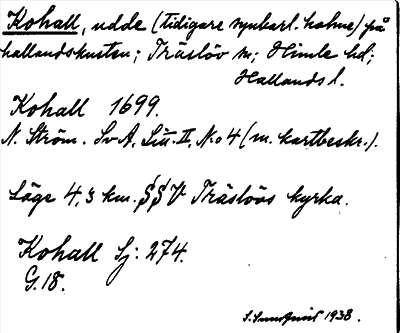 Kohall, udde (tidigare synbarl. holme) på
hallandskusten; Träslöv sn; Himle hd;
Hallands l.
Kohall 1699.
N. Ström. Sv A, Lit. II, No 4 (m. kartbeskr.).
Läge 4,3 km. SSV Träslövs kyrka.
Kohall Sj: 274.
G.18.
1938.